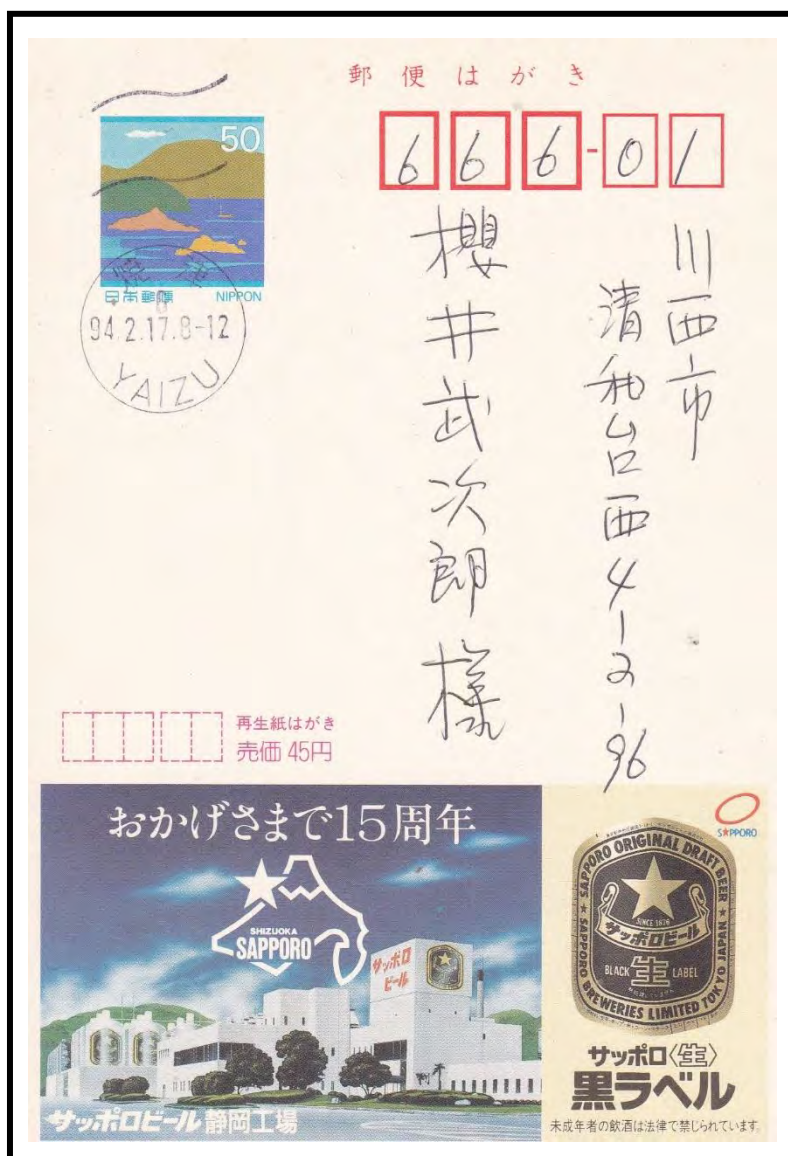 郵便はがき
50
日本郵便 NIPPON
焼津
94.2.17.8-12
YAIZU
666-01
川西市
清和台西4-2-96
櫻井武次郎様
再生紙はがき
売価 45円
おかげさまで15周年
SHIZUOKA
SAPPORO
サッポロ
ビール
サッポロビール 静岡工場
SAPPORO
SAPPORO ORIGINAL DRAFT BEER
SINCE 1876
サッポロビール
BLACK 生 LABEL
SAPPORO BREWERIES LIMITED TOKYO JAPAN
サッポロ〈生〉
黒ラベル
未成年者の飲酒は法律で禁じられています。